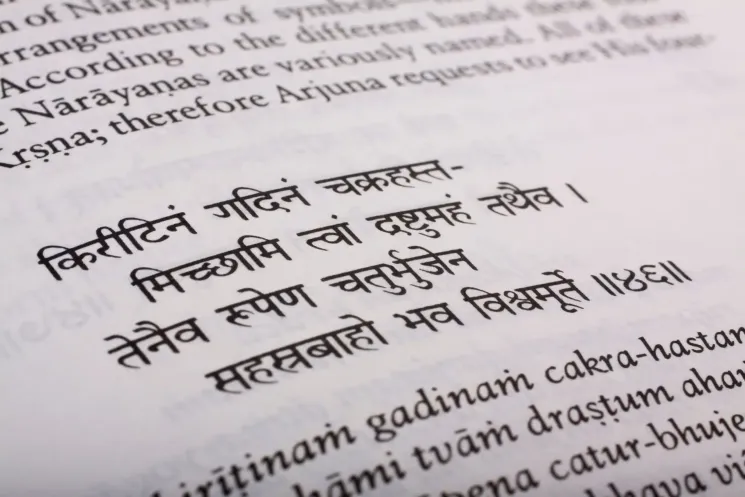 n of Nārāyaṇa
rrangements of symbols
According to the different hands these four
Nārāyaṇas are variously named. All of these
Kṛṣṇa; therefore Arjuna requests to see His four-
किरीटिनं गदिनं चक्रहस्त-
मिच्छामि त्वां द्रष्टुमहं तथैव ।
तेनैव रूपेण चतुर्भुजेन
सहस्रबाहो भव विश्वमूर्ते ॥४६॥
kirīṭinaṁ gadinaṁ cakra-hastam
hāmi tvāṁ draṣṭum aha
pena catur-bhuje
bhava vi